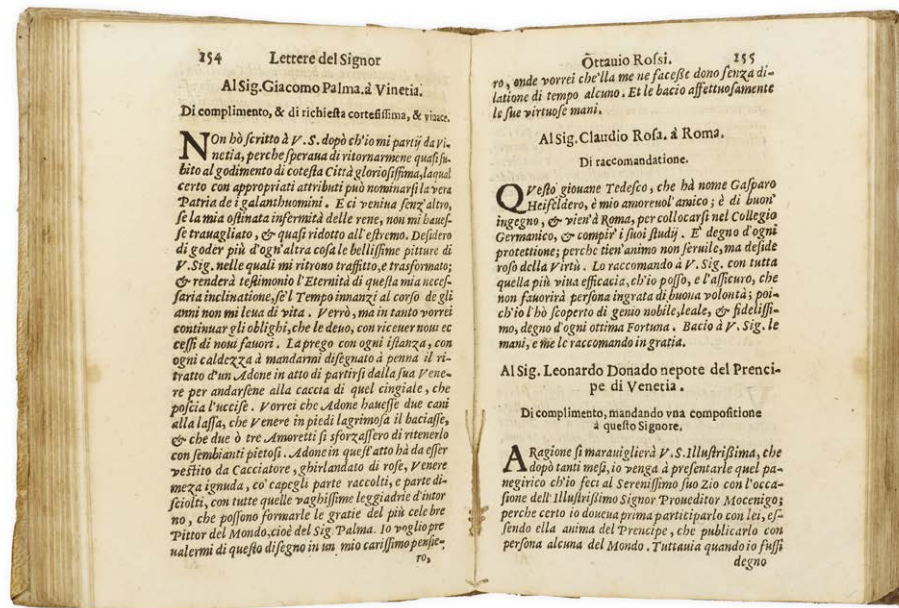 254 Lettere del Signor
Al Sig. Giacomo Palma. à Vinetia.
Di complimento, & di richiesta cortesissima, & viuace.
NOn hò scritto à V. S. dopò ch'io mi partij da Vi-
netia, perche speraua di ritornarmene quasi su-
bito al godimento di cotesta Città gloriosissima, laqual
certo con appropriati attributi può nominarsi la vera
Patria de i galanthuomini. E ci veniua senz'altro,
se la mia ostinata infermità delle rene, non mi haues-
se trauagliato, & quasi ridotto all'estremo. Desidero
di goder più d'ogn'altra cosa le bellissime pitture di
V. Sig. nelle quali mi ritrouo traffitto, e trasformato;
& renderà testimonio l'Eternità di questa mia neces-
saria inclinatione, se'l Tempo innanzi al corso de gli
anni non mi leua di vita. Verrò, ma in tanto vorrei
continuar gli oblighi, che le deuo, con riceuer noui ec
cessi di noui fauori. La prego con ogni istanza, con
ogni caldezza à mandarmi disegnato à penna il ri-
tratto d'un Adone in atto di partirsi dalla sua Vene-
re per andarsene alla caccia di quel cingiale, che
poscia l'uccise. Vorrei che Adone hauesse due cani
alla lassa, che Venere in piedi lagrimosa il baciasse,
& che due ò tre Amoretti si sforzassero di ritenerlo
con sembianti pietosi. Adone in quest'atto hà da esser
vestito da Cacciatore, ghirlandato di rose, Venere
meza ignuda, co' capegli parte raccolti, e parte di-
sciolti, con tutte quelle vaghissime leggiadrie d'intor
no, che possono formarle le gratie del più celebre
Pittor del Mondo, cioè del Sig. Palma. Io voglio pre
ualermi di questo disegno in un mio carissimo pensie-
ro,
Ottauio Rossi. 255
ro, onde vorrei che'lla me ne facesse dono senza di-
latione di tempo alcuno. Et le bacio affettuosamente
le sue virtuose mani.
Al Sig. Claudio Rosa. à Roma.
Di raccomandatione.
QVesto giouane Tedesco, che hà nome Gasparo
Heifeldero, è mio amoreuol'amico; è di buon'
ingegno, & vien'à Roma, per collocarsi nel Collegio
Germanico, & compir' i suoi studij. E' degno d'ogni
protettione; perche tien'animo non seruile, ma deside
roso della Virtù. Lo raccomando à V. Sig. con tutta
quella più viua efficacia, ch'io posso, e l'assicuro, che
non fauorirà persona ingrata di buona volontà; poi-
ch'io l'hò scoperto di genio nobile, leale, & fidelissi-
mo, degno d'ogni ottima Fortuna. Bacio à V. Sig. le
mani, e me le raccomando in gratia.
Al Sig. Leonardo Donado nepote del Prenci-
pe di Venetia.
Di complimento, mandando vna compositione
à questo Signore.
A Ragione si marauiglierà V. S. Illustrissima, che
dopò tanti mesi, io venga à presentarle quel pa-
negirico ch'io feci al Serenissimo suo Zio con l'occa-
sione dell'Illustrissimo Signor Proueditor Mocenigo;
perche certo io doueua prima participarlo con lei, es-
sendo ella anima del Prencipe, che publicarlo con
persona alcuna del Mondo. Tuttauia quando io fussi
degno